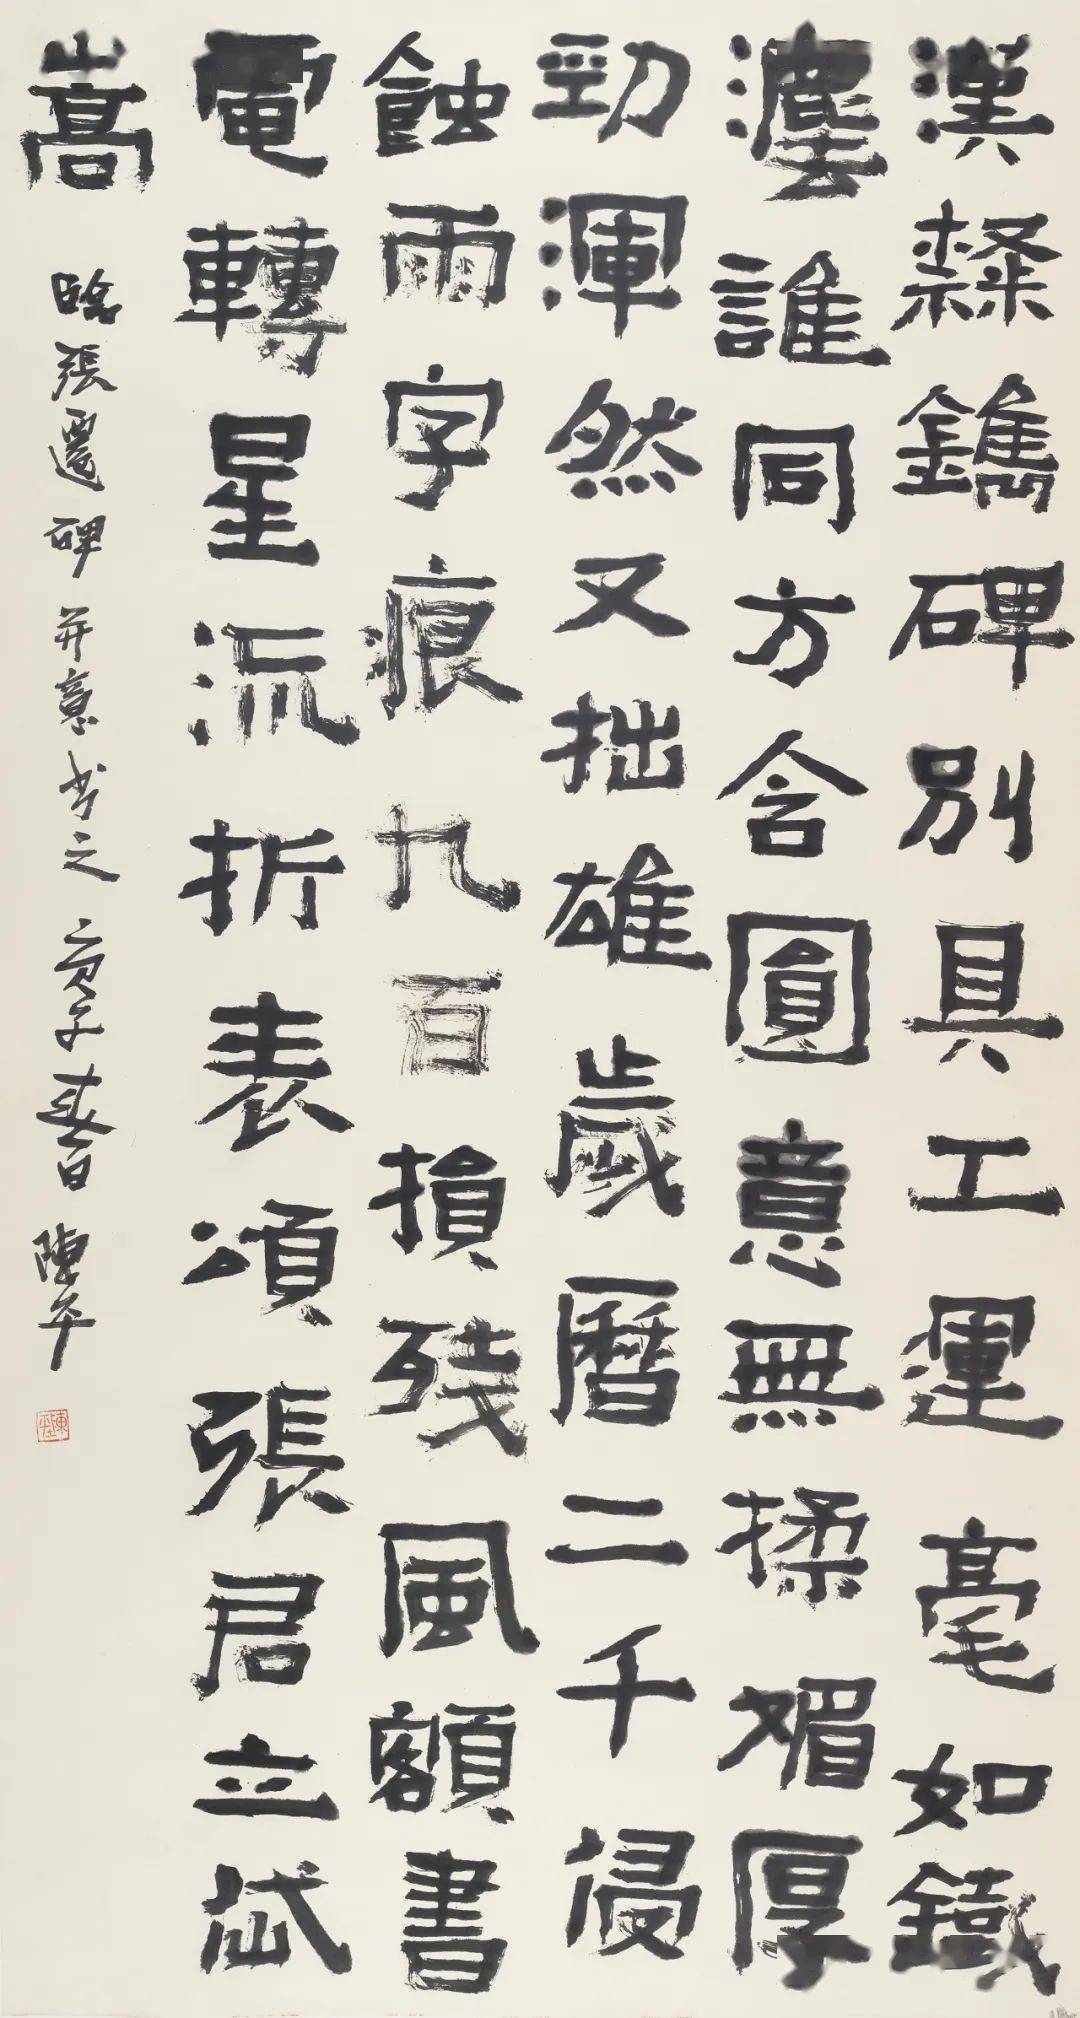 漢隸鐫碑別具工運毫如鐵
灋誰同方含圓意無揉媚厚
勁渾然又拙雄歲曆二千侵
蝕雨字痕九百損殘風額書
電轉星流折表頌張君立岱
嵩
臨張遷碑并意書之 庚子春日 陳平
陳平